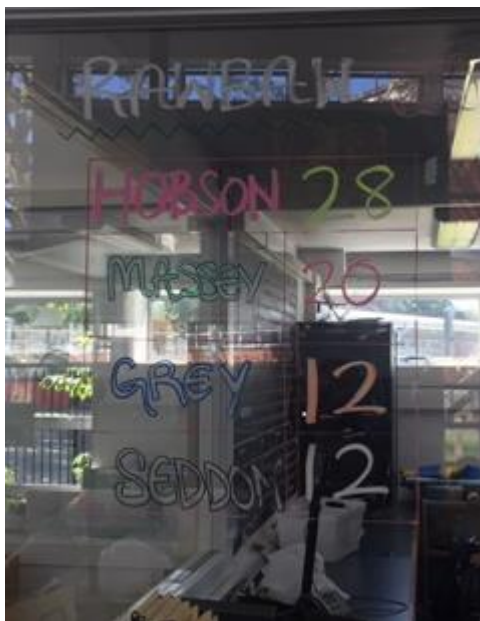 RAWBAW
HOBSON 28
MASSEY 20
GREY 12
SEDDON 12